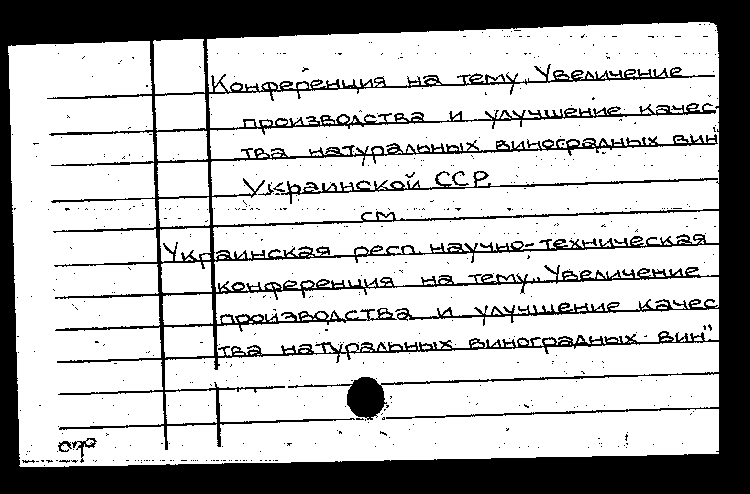 Конференция на тему „Увеличение
производства и улучшение качес-
тва натуральных виноградных вин"
Украинской ССР.
см
Украинская респ. научно-техническая
конференция на тему „Увеличение
производства и улучшение качес
тва натуральных виноградных вин".